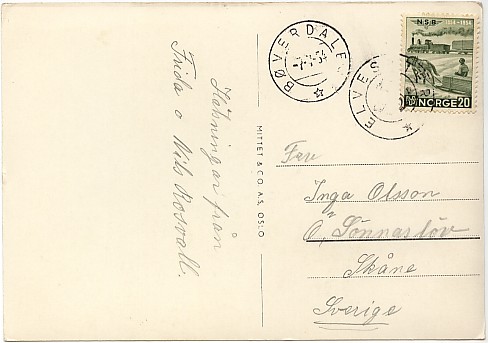 Hälsningar från
Frida o Nils Rosvall.
BØVERDALEN
-7-7-54
MITTET & CO. A.S, OSLO
N.S.B. 1854-1954
NORGE 20
ELVES
Fru
Inga Olsson
Ö, Sönnaslöv
Skåne
Sverige